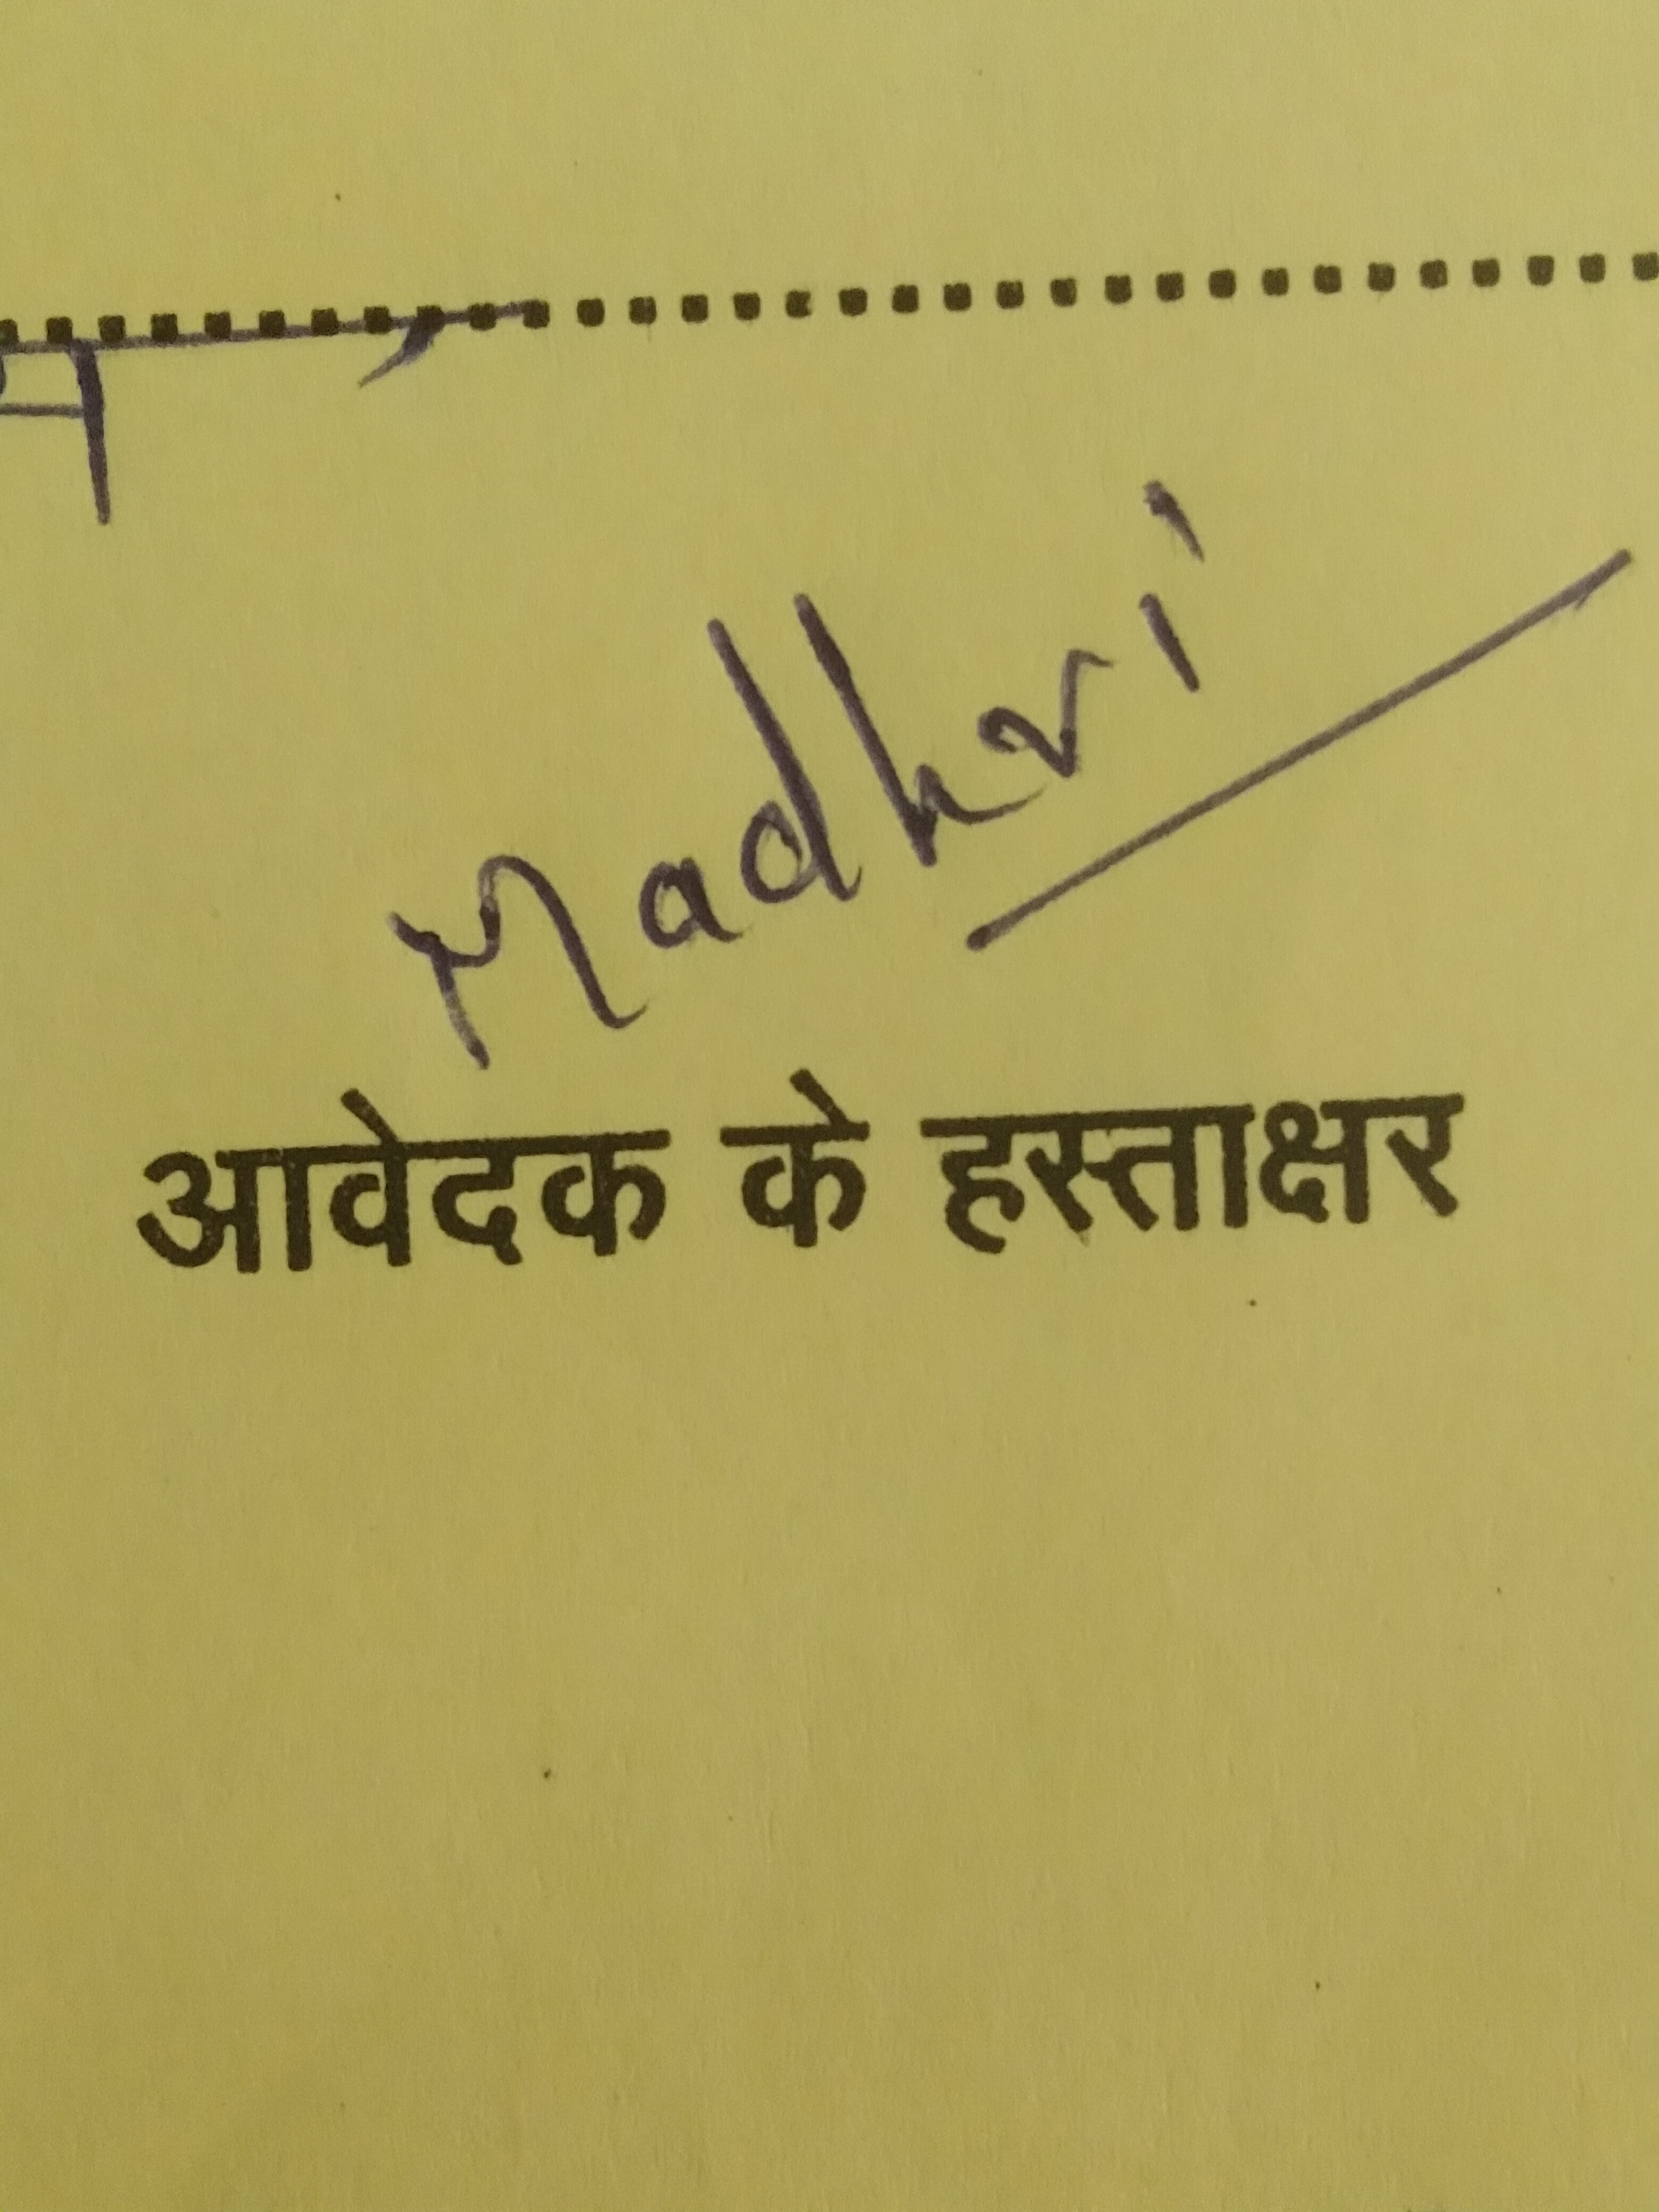 Madhvri
आवेदक के हस्ताक्षर